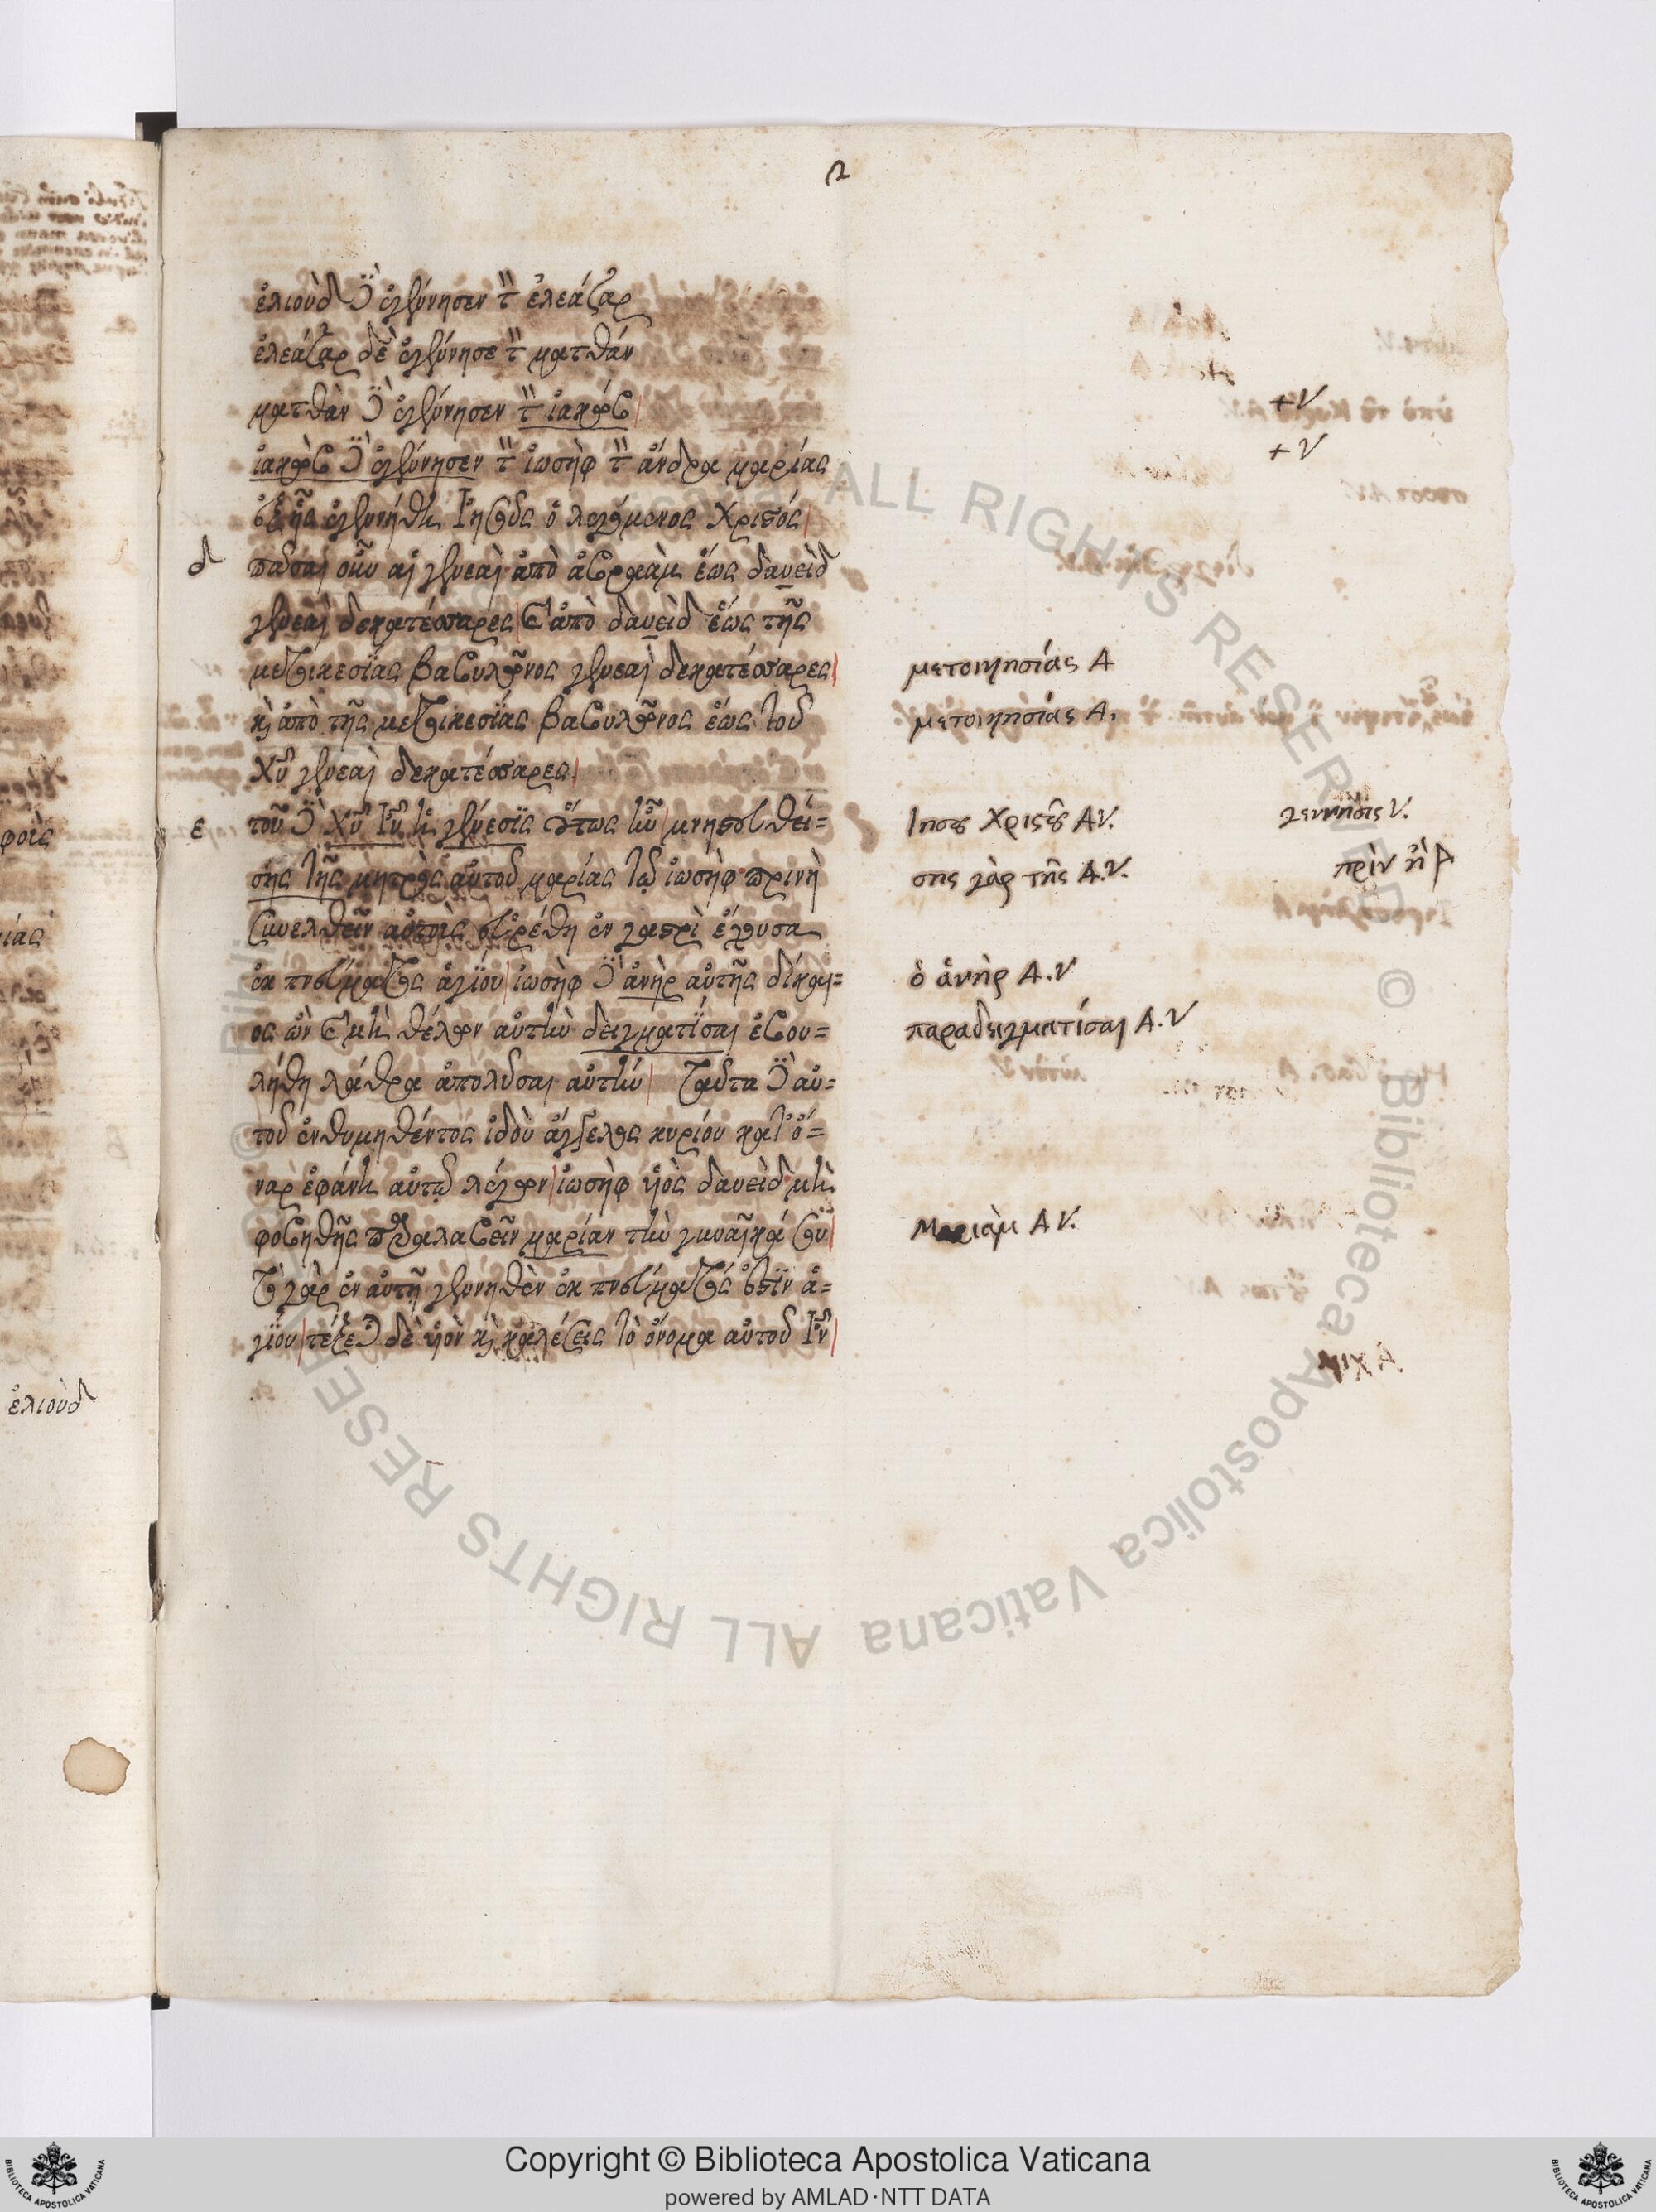 2
ἐλιοὺδ δὲ ἐγέννησεν τὸν ἐλεάζαρ
ἐλεάζαρ δὲ ἐγέννησε τὸν ματθάν
ματθὰν δὲ ἐγέννησεν τὸν ἰακώβ
+ V
ἰακὼβ δὲ ἐγέννησεν τὸν ἰωσὴφ τὸν ἄνδρα μαρίας
+ V
ἐξ ἧς ἐγεννήθη Ἰησοῦς ὁ λεγόμενος Χριστός
δ πᾶσαι οὖν αἱ γενεαὶ ἀπὸ ἀβραὰμ ἕως δαυεὶδ
γενεαὶ δεκατέσσαρες καὶ ἀπὸ δαυεὶδ ἕως τῆς
μετοικεσίας βαβυλῶνος γενεαὶ δεκατέσσαρες
μετοικησίας A
καὶ ἀπὸ τῆς μετοικεσίας βαβυλῶνος ἕως τοῦ
μετοικησίας A.
Χῦ γενεαὶ δεκατέσσαρες
ε τοῦ δὲ Χῦ Ἰῦ ἡ γένεσις οὕτως ἦν μνηστευθεί=
Ιησοῦ Χριστοῦ AV. γεννησις V.
σης τῆς μητρὸς αὐτοῦ μαρίας τῷ ἰωσὴφ πρινὴ
σης γὰρ τῆς A.V. πρὶν ἢ A
συνελθεῖν αὐτοὺς εὑρέθη ἐν γαστρὶ ἔχουσα
ἐκ πνεύματος ἁγίου ἰωσὴφ δὲ ἀνὴρ αὐτῆς δίκαι=
ὁ ἀνὴρ A.V
ος ὢν καὶ μὴ θέλων αὐτὴν δειγματίσαι ἐβου=
παραδειγματίσαι A.V
λήθη λάθρα ἀπολῦσαι αὐτήν ταῦτα δὲ αὐ=
τοῦ ἐνθυμηθέντος ἰδοὺ ἄγγελος κυρίου κατ' ὄ=
ναρ ἐφάνη αὐτῷ λέγων ἰωσὴφ υἱὸς δαυεὶδ μὴ
φοβηθῇς παραλαβεῖν μαρίαν τὴν γυναῖκά σου
Μαριὰμ AV.
τὸ γὰρ ἐν αὐτῇ γεννηθὲν ἐκ πνεύματός ἐστιν ἁ=
γίου τέξεται δὲ υἱὸν καὶ καλέσεις τὸ ὄνομα αὐτοῦ Ἰν
ἐλιοὺδ
© Biblioteca Apostolica Vaticana ALL RIGHTS RESERVED
Copyright © Biblioteca Apostolica Vaticana
powered by AMLAD·NTT DATA
BIBLIOTECA APOSTOLICA VATICANA
BIBLIOTECA APOSTOLICA VATICANA